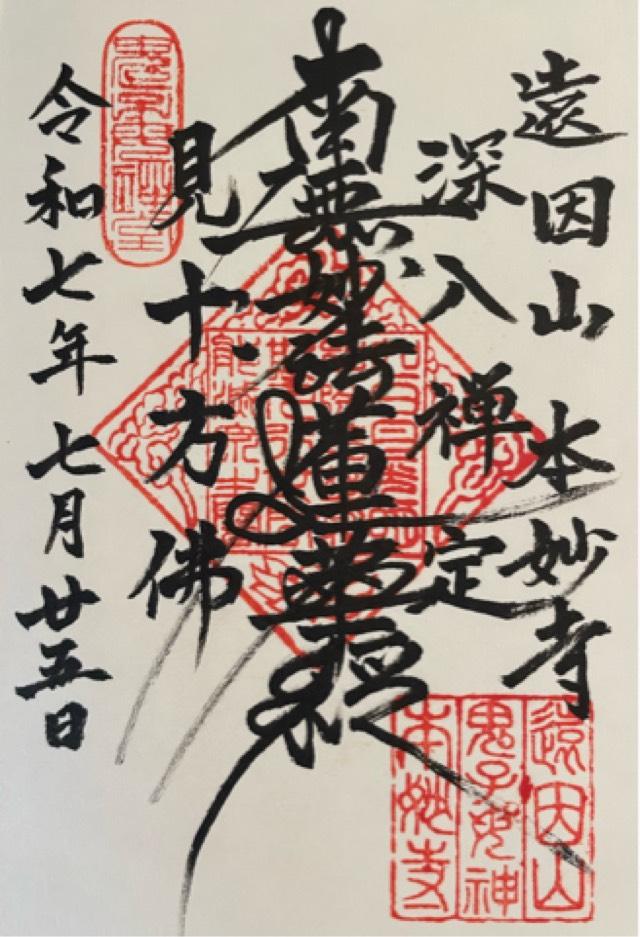 遠因山 本妙寺
深入禅定
南無妙法蓮華経
見十方佛
令和七年 七月廿五日
遠因山
鬼子母神
本妙寺